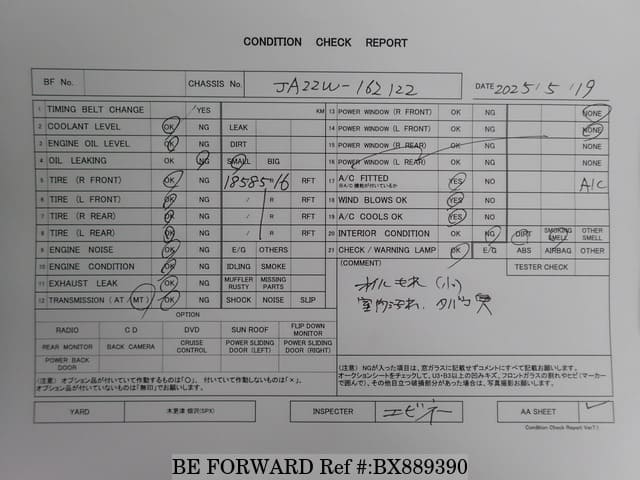 CONDITION CHECK REPORT
BF No. CHASSIS No. JA22W-162122 DATE 2025/5/19
1 TIMING BELT CHANGE /YES KM 13 POWER WINDOW (R FRONT) OK NG NONE
2 COOLANT LEVEL OK NG LEAK 14 POWER WINDOW (L FRONT) OK NG NONE
3 ENGINE OIL LEVEL OK NG DIRT 15 POWER WINDOW (R REAR) OK NG
4 OIL LEAKING OK NG SMALL BIG 16 POWER WINDOW (L REAR) OK NG
5 TIRE (R FRONT) OK NG 185 85 R 16 RFT 17 A/C FITTED ※A/C機能が付いているか YES NO A/C
6 TIRE (L FRONT) OK NG / R RFT 18 WIND BLOWS OK YES NO
7 TIRE (R REAR) OK NG / R RFT 19 A/C COOLS OK YES NO
8 TIRE (L REAR) OK NG / R RFT 20 INTERIOR CONDITION OK NG DIRT SMOKING SMELL OTHER SMELL
9 ENGINE NOISE OK NG E/G OTHERS 21 CHECK / WARNING LAMP OK E/G ABS AIRBAG OTHER
10 ENGINE CONDITION OK NG IDLING SMOKE (COMMENT) TESTER CHECK
11 EXHAUST LEAK OK NG MUFFLER RUSTY MISSING PARTS オイルもれ (小)
12 TRANSMISSION (AT / MT) OK NG SHOCK NOISE SLIP 室内汚れ、タバコ臭
OPTION
RADIO CD DVD SUN ROOF FLIP DOWN MONITOR
REAR MONITOR BACK CAMERA CRUISE CONTROL POWER SLIDING DOOR (LEFT) POWER SLIDING DOOR (RIGHT)
POWER BACK DOOR
(注意) オプション品が付いていて作動するものは「○」、付いていて作動しないものは「×」、
オプション品が付いていないものは「無印」でお願いします。
(注意) NGが入った項目は、窓ガラスに記載せずコメントにすべて記載お願いします。
オークションシートをチェックして、U3・B3以上の凹みキズ、フロントガラスの割れやヒビ(マーカー
で囲んで)、その他目立つ破損部分があった場合は、写真撮影お願いします。
YARD 木更津 畑沢(SPX) INSPECTER エビネ AA SHEET ✓
Condition Check Report Ver7.1
BE FORWARD Ref #:BX889390